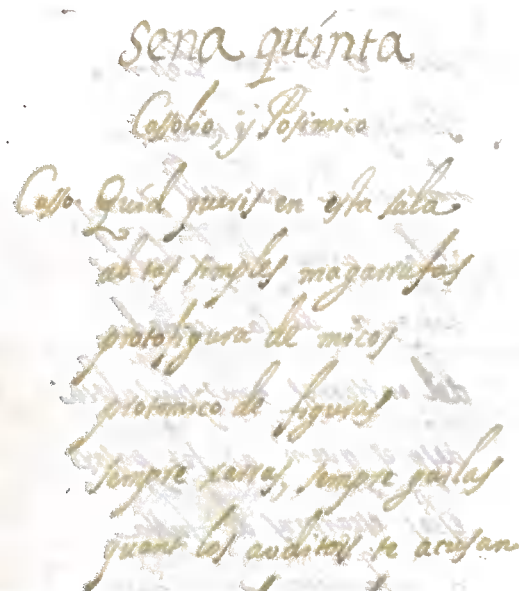 sena quinta
Cassolio, y Posimico
Casso. Quid queris en esta sala
no sos simples magarrufas
protofigura de micos
protomico de figuras
sempre xarras, sempre gurlas
quant los auditors te acusan